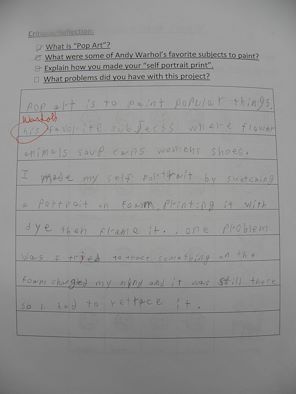 Critique/Reflection:
What is "Pop Art"?
What were some of Andy Warhol's favorite subjects to paint?
Explain how you made your "self portrait print".
What problems did you have with this project?
Pop art is to paint popular things.
Warhols
his favorite subjects where flower
animals soup cans womens shoes.
I made my self portrait by sketching
a portrait on foam, printing it with
dye then frame it. one problem
was I tried to trace something on the
foam changed my mind and it was still there
so I had to retrace it.